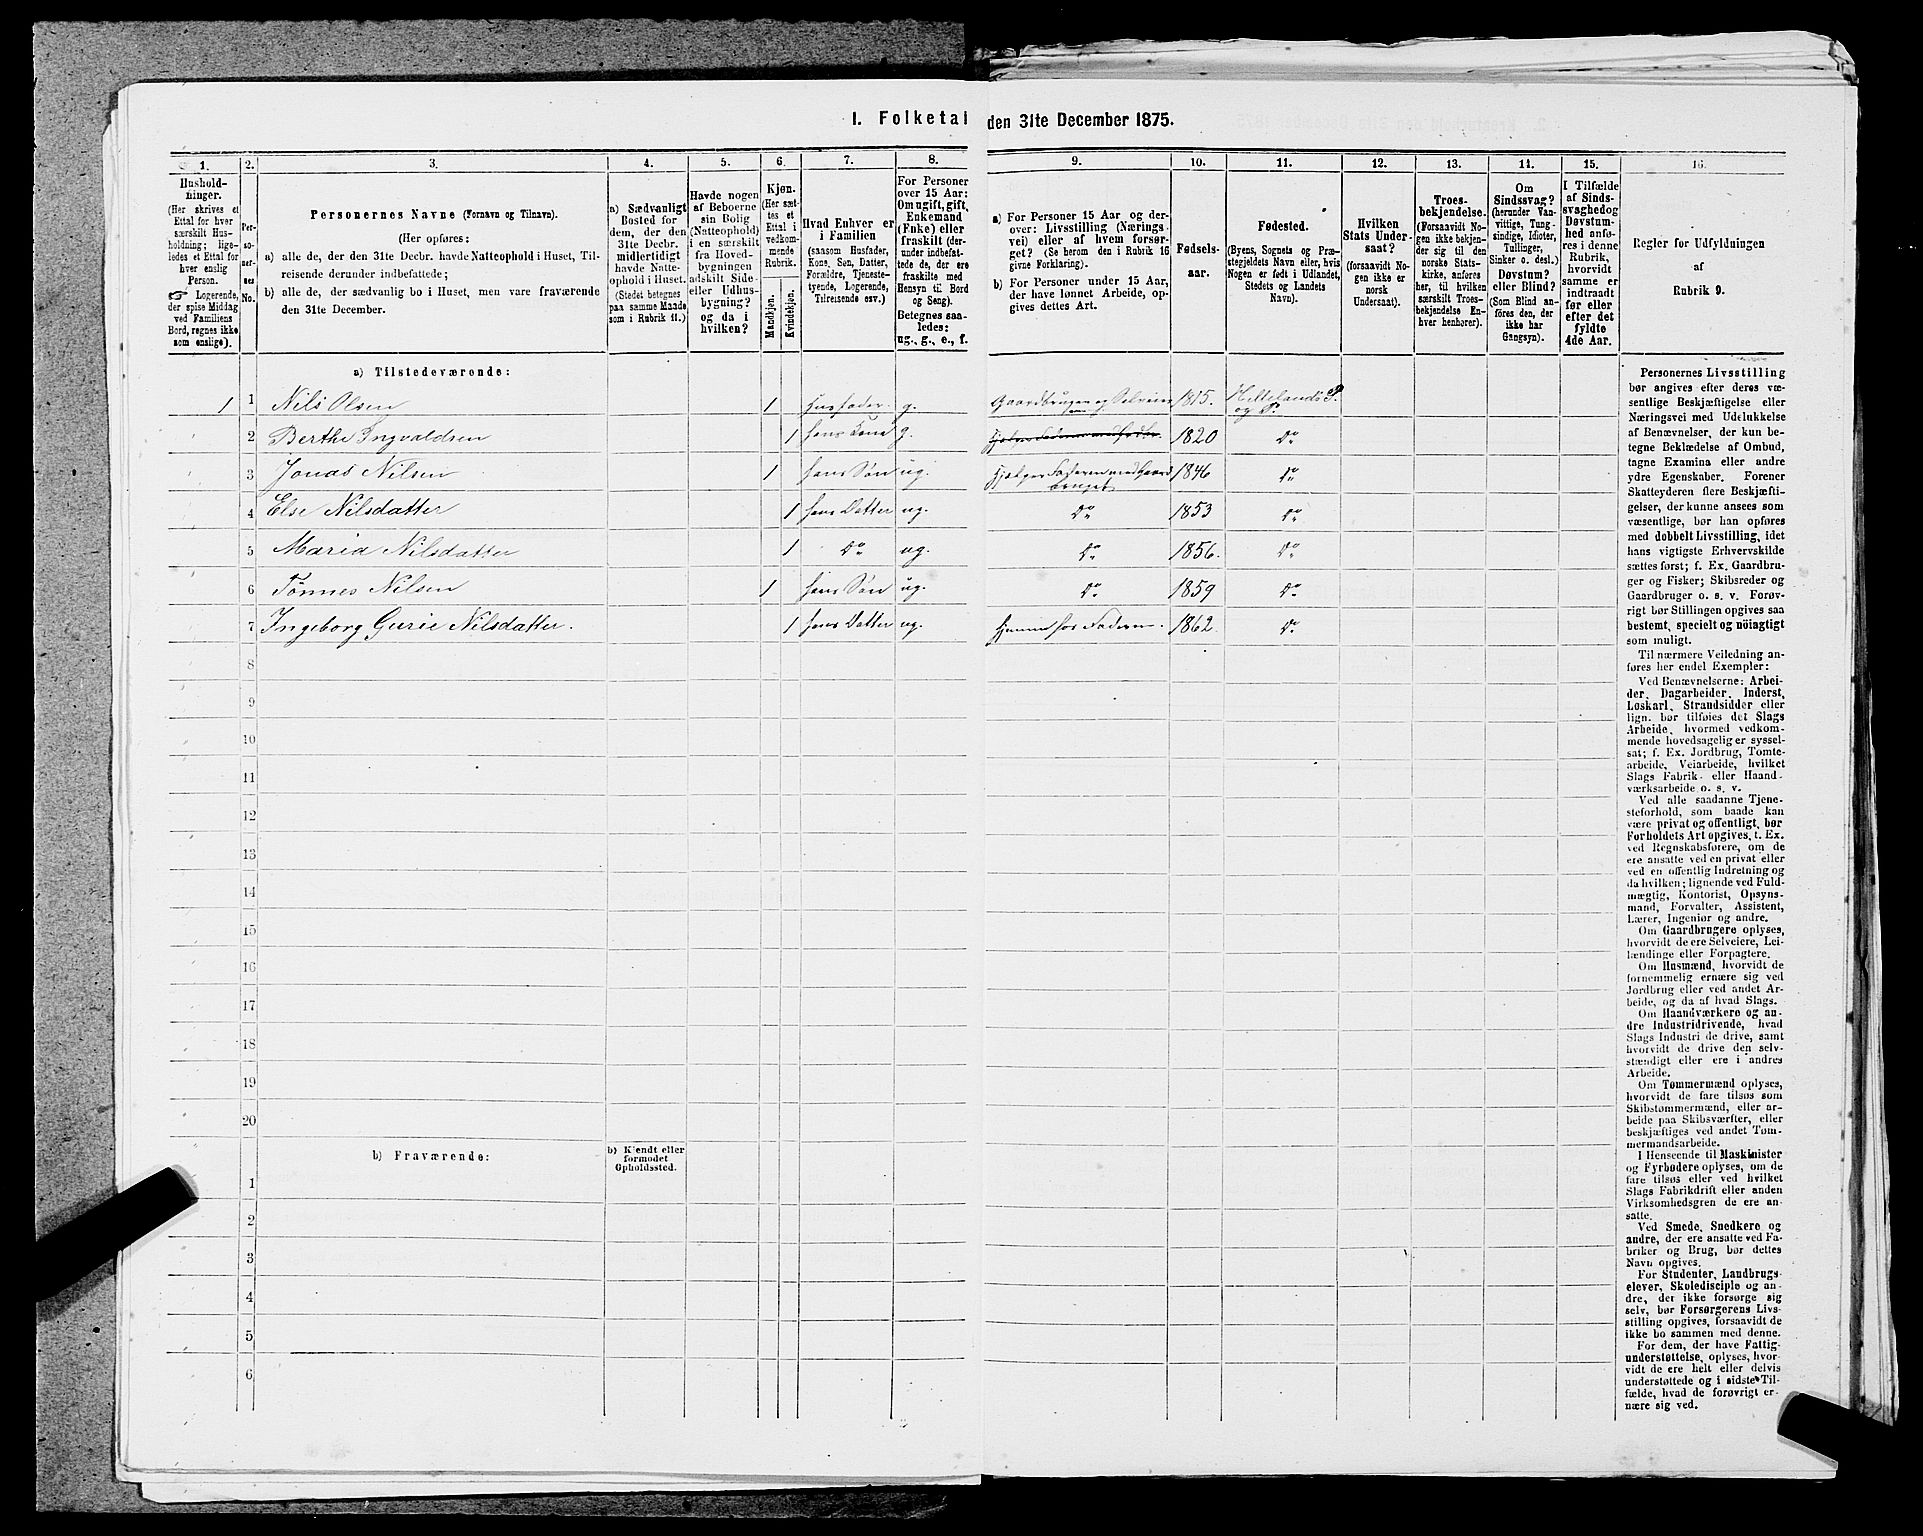 I. Folketal den 31te December 1875.
1. 2. 3. 4. 5. 6. 7. 8. 9. 10. 11. 12. 13. 14. 15. 16.
Hushold-
ninger.
(Her skrives et
Ettal for hver
særskilt Hus-
holdning; lige-
ledes et Ettal for
hver enslig
Person.
☞ Logerende,
der spise Middag
ved Familiens
Bord, regnes ikke
som enslige).
Per-
so-
ner-
nes
No.
Personernes Navne (Fornavn og Tilnavn).
(Her opføres:
a) alle de, der den 31te Decbr. havde Natteophold i Huset, Til-
reisende derunder indbefattede;
b) alle de, der sædvanlig bo i Huset, men vare fraværende
den 31te December.
a) Sædvanligt
Bosted for
dem, der den
31te Decbr.
midlertidigt
havde Natte-
ophold i Huset.
(Stedet betegnes
paa samme Maade
som i Rubrik 11.)
Havde nogen
af Beboerne
sin Bolig
(Natteophold)
i en særskilt
fra Hoved-
bygningen
adskilt Side
eller Udhus-
bygning?
og da i
hvilken?
Kjøn.
(Her sæt-
tes et
Ettal i
vedkom-
mende
Rubrik.
Mandkjøn.
Kvindekjøn.
Hvad Enhver er
i Familien
(saasom Husfader,
Kone, Søn, Datter,
Forældre, Tjeneste-
tyende, Logerende,
Tilreisende osv.)
For Personer
over 15 Aar:
Om ugift, gift,
Enkemand
(Enke) eller
fraskilt (der-
under indbefat-
tede de, der ere
fraskilte med
Hensyn til Bord
og Seng).
Betegnes saa-
ledes:
ug., g., e., f.
a) For Personer 15 Aar og der-
over: Livsstilling (Nærings-
vei) eller af hvem forsør-
get? (Se herom den i Rubrik 16
givne Forklaring).
b) For Personer under 15 Aar,
der have lønnet Arbeide, op-
gives dettes Art.
Fødsels-
aar.
Fødested.
(Byens, Sognets og Præ-
stegjeldets Navn eller, hvis
Nogen er født i Udlandet,
Stedets og Landets
Navn).
Hvilken
Stats Under-
saat?
(forsaavidt No-
gen ikke er
norsk
Undersaat).
Troes-
bekjendelse.
(Forsaavidt No-
gen ikke bekjen-
der sig til den
norske Stats-
kirke, anføres
her, til hvilken
særskilt Troes-
bekjendelse En-
hver henhører).
Om
Sindssvag?
(herunder Van-
vittige, Tung-
sindige, Idioter,
Tullinger,
Sinker o. desl.)
Døvstum?
eller Blind?
(Som Blind an-
føres den, der
ikke har
Gangsyn).
I Tilfælde
af Sinds-
svaghed og
Døvstum-
hed anfø-
res i denne
Rubrik,
hvorvidt
samme er
indtraadt
før eller
efter det
fyldte
4de Aar.
Regler for Udfyldningen
af
Rubrik 9.
a) Tilstedeværende:
1 1 Nils Olsen 1 Husfader. g. Gaardbruger og Selveier 1815. Hellelands S. og P.
2 Berthe Ingvaldsen 1 hans Kone g. 1820 Do
3 Jonas Nilsen 1 hans Søn ug. Hjelper Faderen med Gaardbruget 1846 Do
4 Else Nilsdatter 1 hans Datter ug. Do 1853 Do
5 Maria Nilsdatter 1 Do ug. Do 1856. Do
6 Tönnes Nilsen 1 hans Søn ug. Do 1859 Do
7 Ingeborg Gurie Nilsdatter. 1 hans Datter ug. Hjemme hos Faderen. 1862. Do
8
9
10
11
12
13
14
15
16
17
18
19
20
b) Fraværende:
b) Kjendt eller
formodet
Opholdssted.
1
2
3
4
5
6
Personernes Livsstilling
bør angives efter deres væ-
sentlige Beskjæftigelse eller
Næringsvei med Udelukkelse
af Benævnelser, der kun be-
tegne Beklædelse af Ombud,
tagne Examina eller andre
ydre Egenskaber. Forener
Skatteyderen flere Beskjæfti-
gelser, der kunne ansees som
væsentlige, bør han opføres
med dobbelt Livsstilling, idet
hans vigtigste Erhvervskilde
sættes først; f. Ex. Gaardbru-
ger og Fisker; Skibsreder og
Gaardbruger o. s. v. Forøv-
rigt bør Stillingen opgives saa
bestemt, specielt og nöiagtigt
som muligt.
Til nærmere Veiledning an-
føres her endel Exempler:
Ved Benævnelserne: Arbei-
der, Dagarbeider, Inderst,
Løskarl, Strandsidder eller
lign. bør tilføies det Slags
Arbeide, hvormed vedkom-
mende hovedsagelig er syssel-
sat; f. Ex. Jordbrug, Tomte-
arbeide, Veiarbeide, hvilket
Slags Fabrik- eller Haand-
værksarbeide o. s. v.
Ved alle saadanne Tjene-
steforhold, som baade kan
være privat og offentligt, bør
Forholdets Art opgives, t. Ex.
ved Regnskabsførere, om de
ere ansatte ved en privat eller
ved en offentlig Indretning og
da hvilken; lignende ved Fuld-
mægtig, Kontorist, Opsyns-
mand, Forvalter, Assistent,
Lærer, Ingeniør og andre.
Om Gaardbrugere oplyses,
hvorvidt de ere Selveiere, Lei-
lændinge eller Forpagtere.
Om Husmænd, hvorvidt de
fornemmelig ernære sig ved
Jordbrug eller ved andet Ar-
beide, og da af hvad Slags.
Om Haandværkere og an-
dre Industridrivende, hvad
Slags Industri de drive, samt
hvorvidt de drive den selv-
stændigt eller ere i andres
Arbeide.
Om Tømmermænd oplyses,
hvorvidt de fare tilsøs som
Skibstømmermænd, eller ar-
beide paa Skibsværfter, eller
beskjæftiges ved andet Tøm-
mermandsarbeide.
I Henseende til Maskinister
og Fyrbødere oplyses, om de
fare tilsøs eller ved hvilket
Slags Fabrikdrift eller anden
Virksomhedsgren de ere an-
satte.
Ved Smede, Snedkere og
andre, der ere ansatte ved Fa-
briker og Brug, bør dettes
Navn opgives.
For Studenter, Landbrugs-
elever, Skoledisciple og an-
dre, der ikke forsørge sig
selv, bør Forsørgerens Livs-
stilling opgives, forsaavidt de
ikke bo sammen med denne.
For dem, der have Fattig-
understøttelse, oplyses, hvor-
vidt de ere helt eller delvis
understøttede og i sidste Til-
fælde, hvad de forøvrigt er-
nære sig ved.